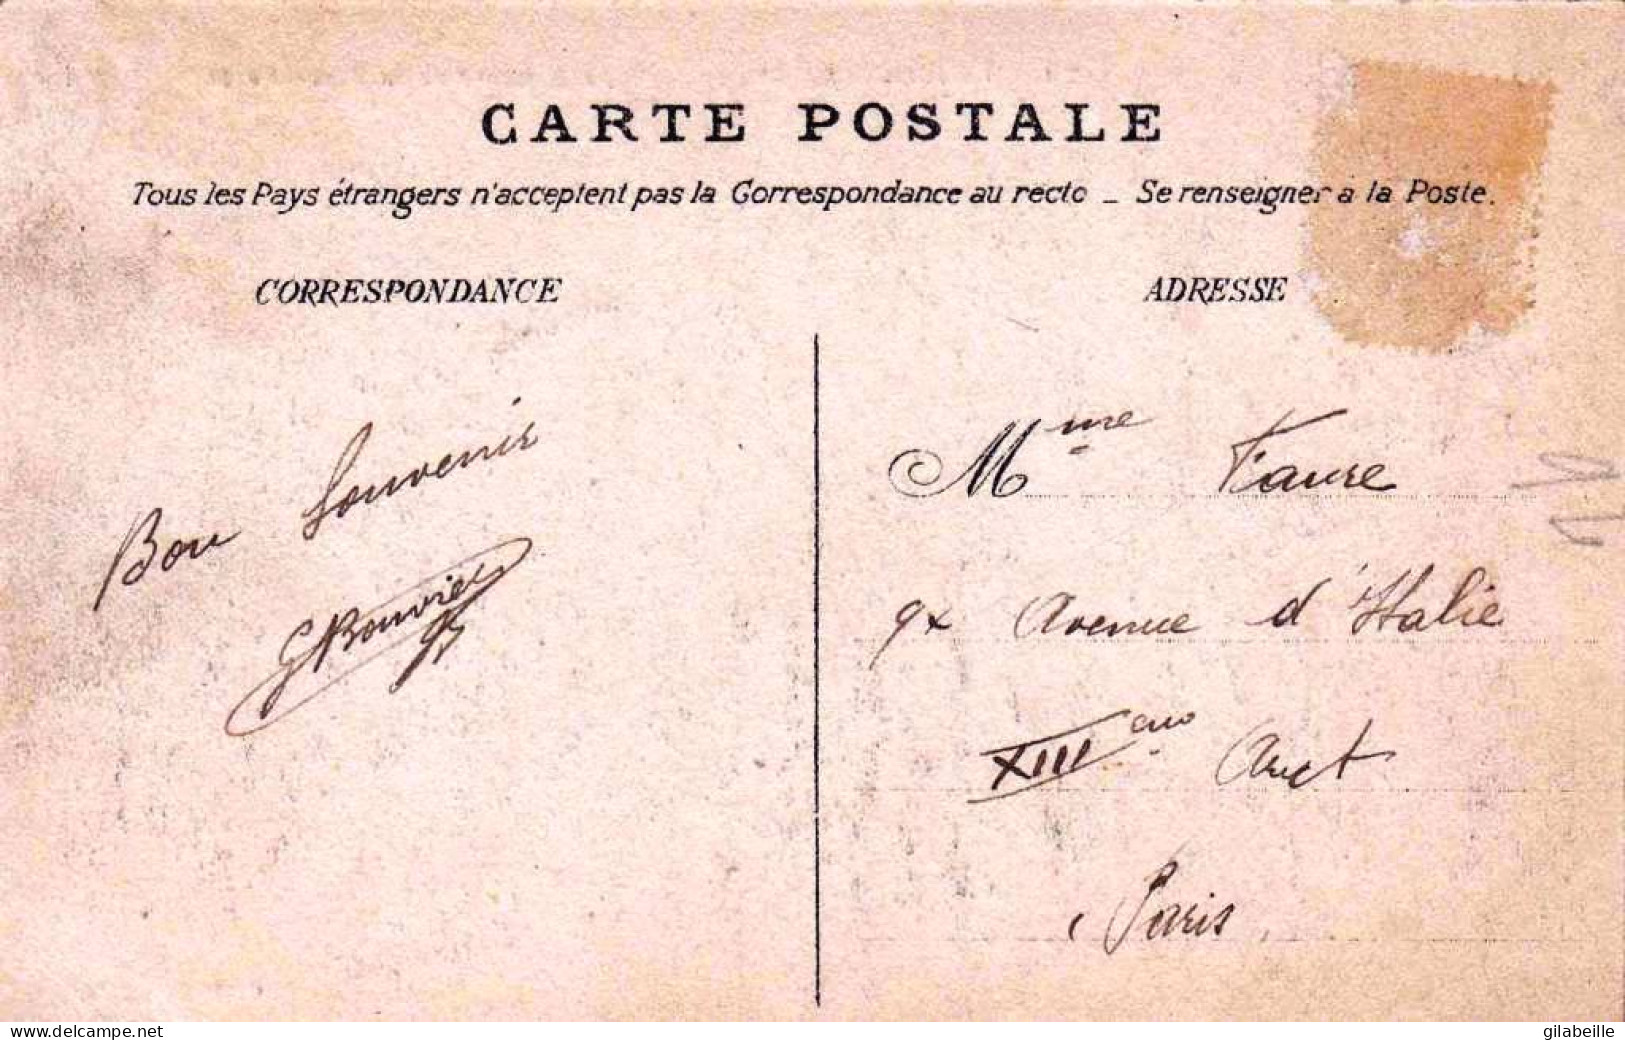 CARTE POSTALE
Tous les Pays étrangers n'acceptent pas la Correspondance au recto _ Se renseigner à la Poste.
CORRESPONDANCE
ADRESSE
Bon Souvenir
GBouvier
Mme Faure
Avenue d'Italie
XIIIeme Arrt
Paris
www.delcampe.net
gilabeille